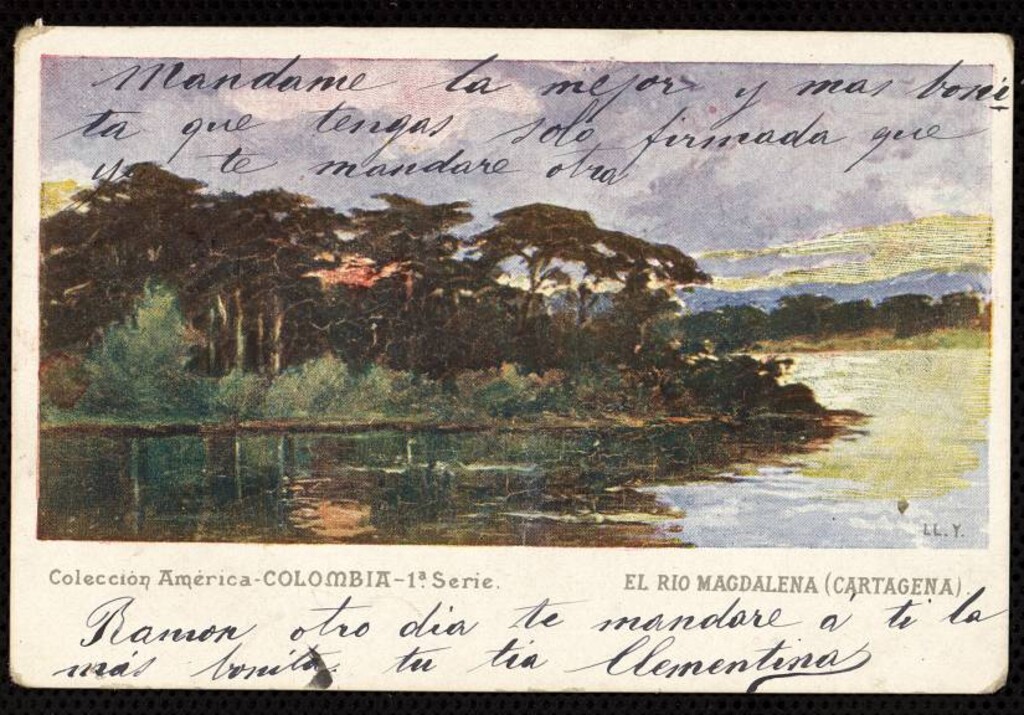 Mandame la mejor y mas boni
ta que tengas solo firmada que
yo te mandare otra
LL. Y.
Colección América-COLOMBIA-1ª Serie.
EL RIO MAGDALENA (CARTAGENA).
Ramon otro dia te mandare á ti la
más bonita. tu tia Clementina